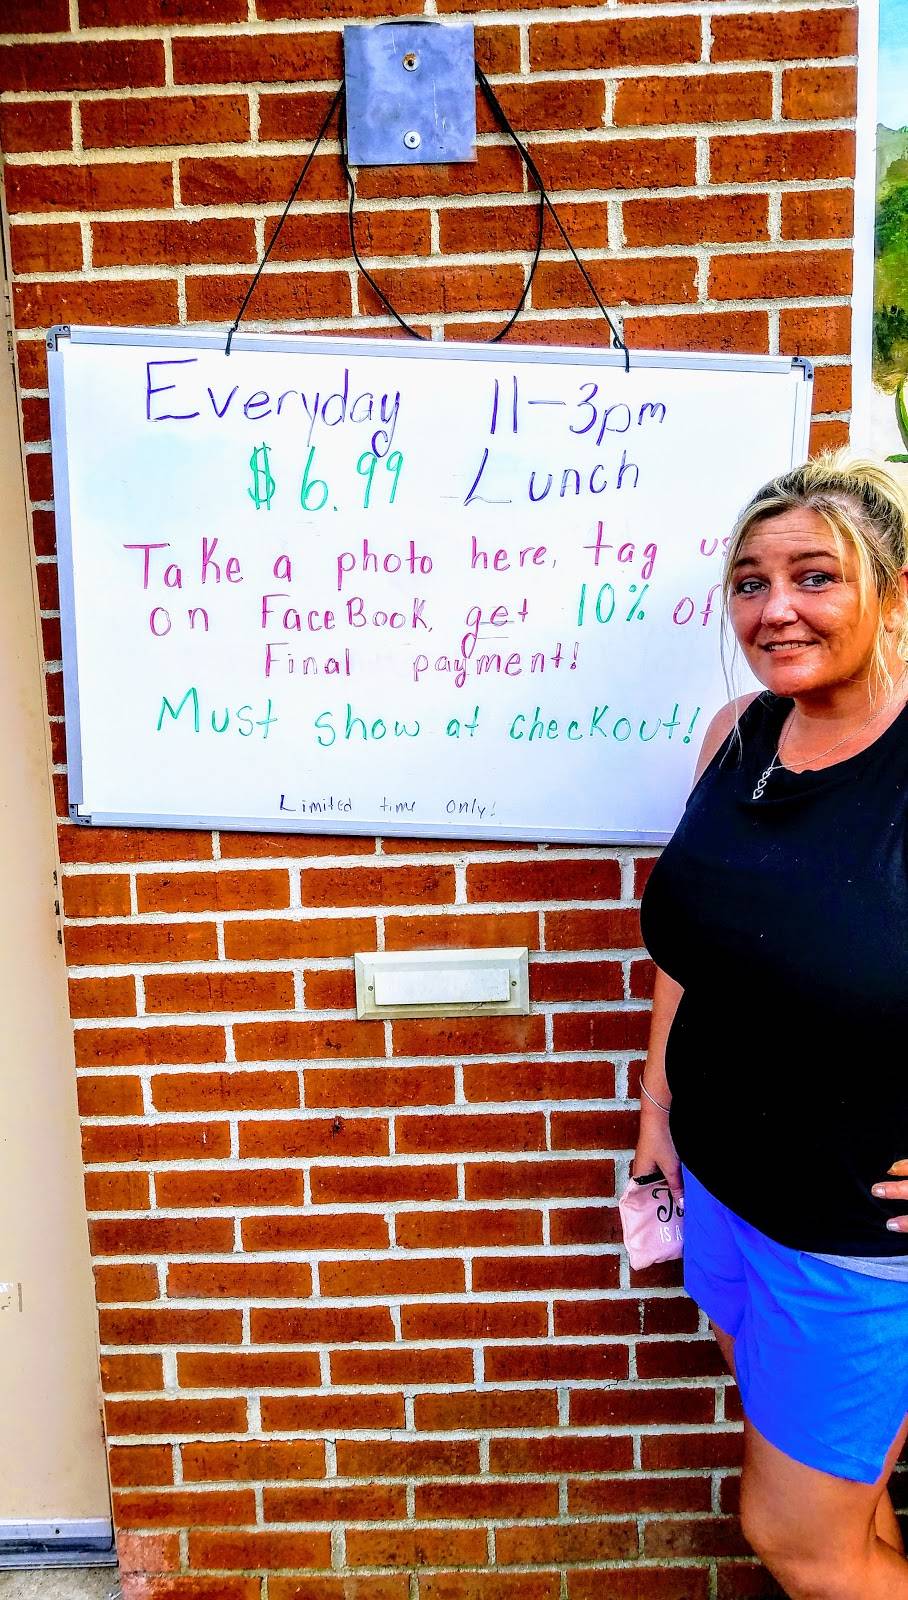 Everyday 11-3pm
$6.99 Lunch
Take a photo here, tag us
on FaceBook, get 10% of
Final payment!
Must show at checkout!
Limited time only!
IS A